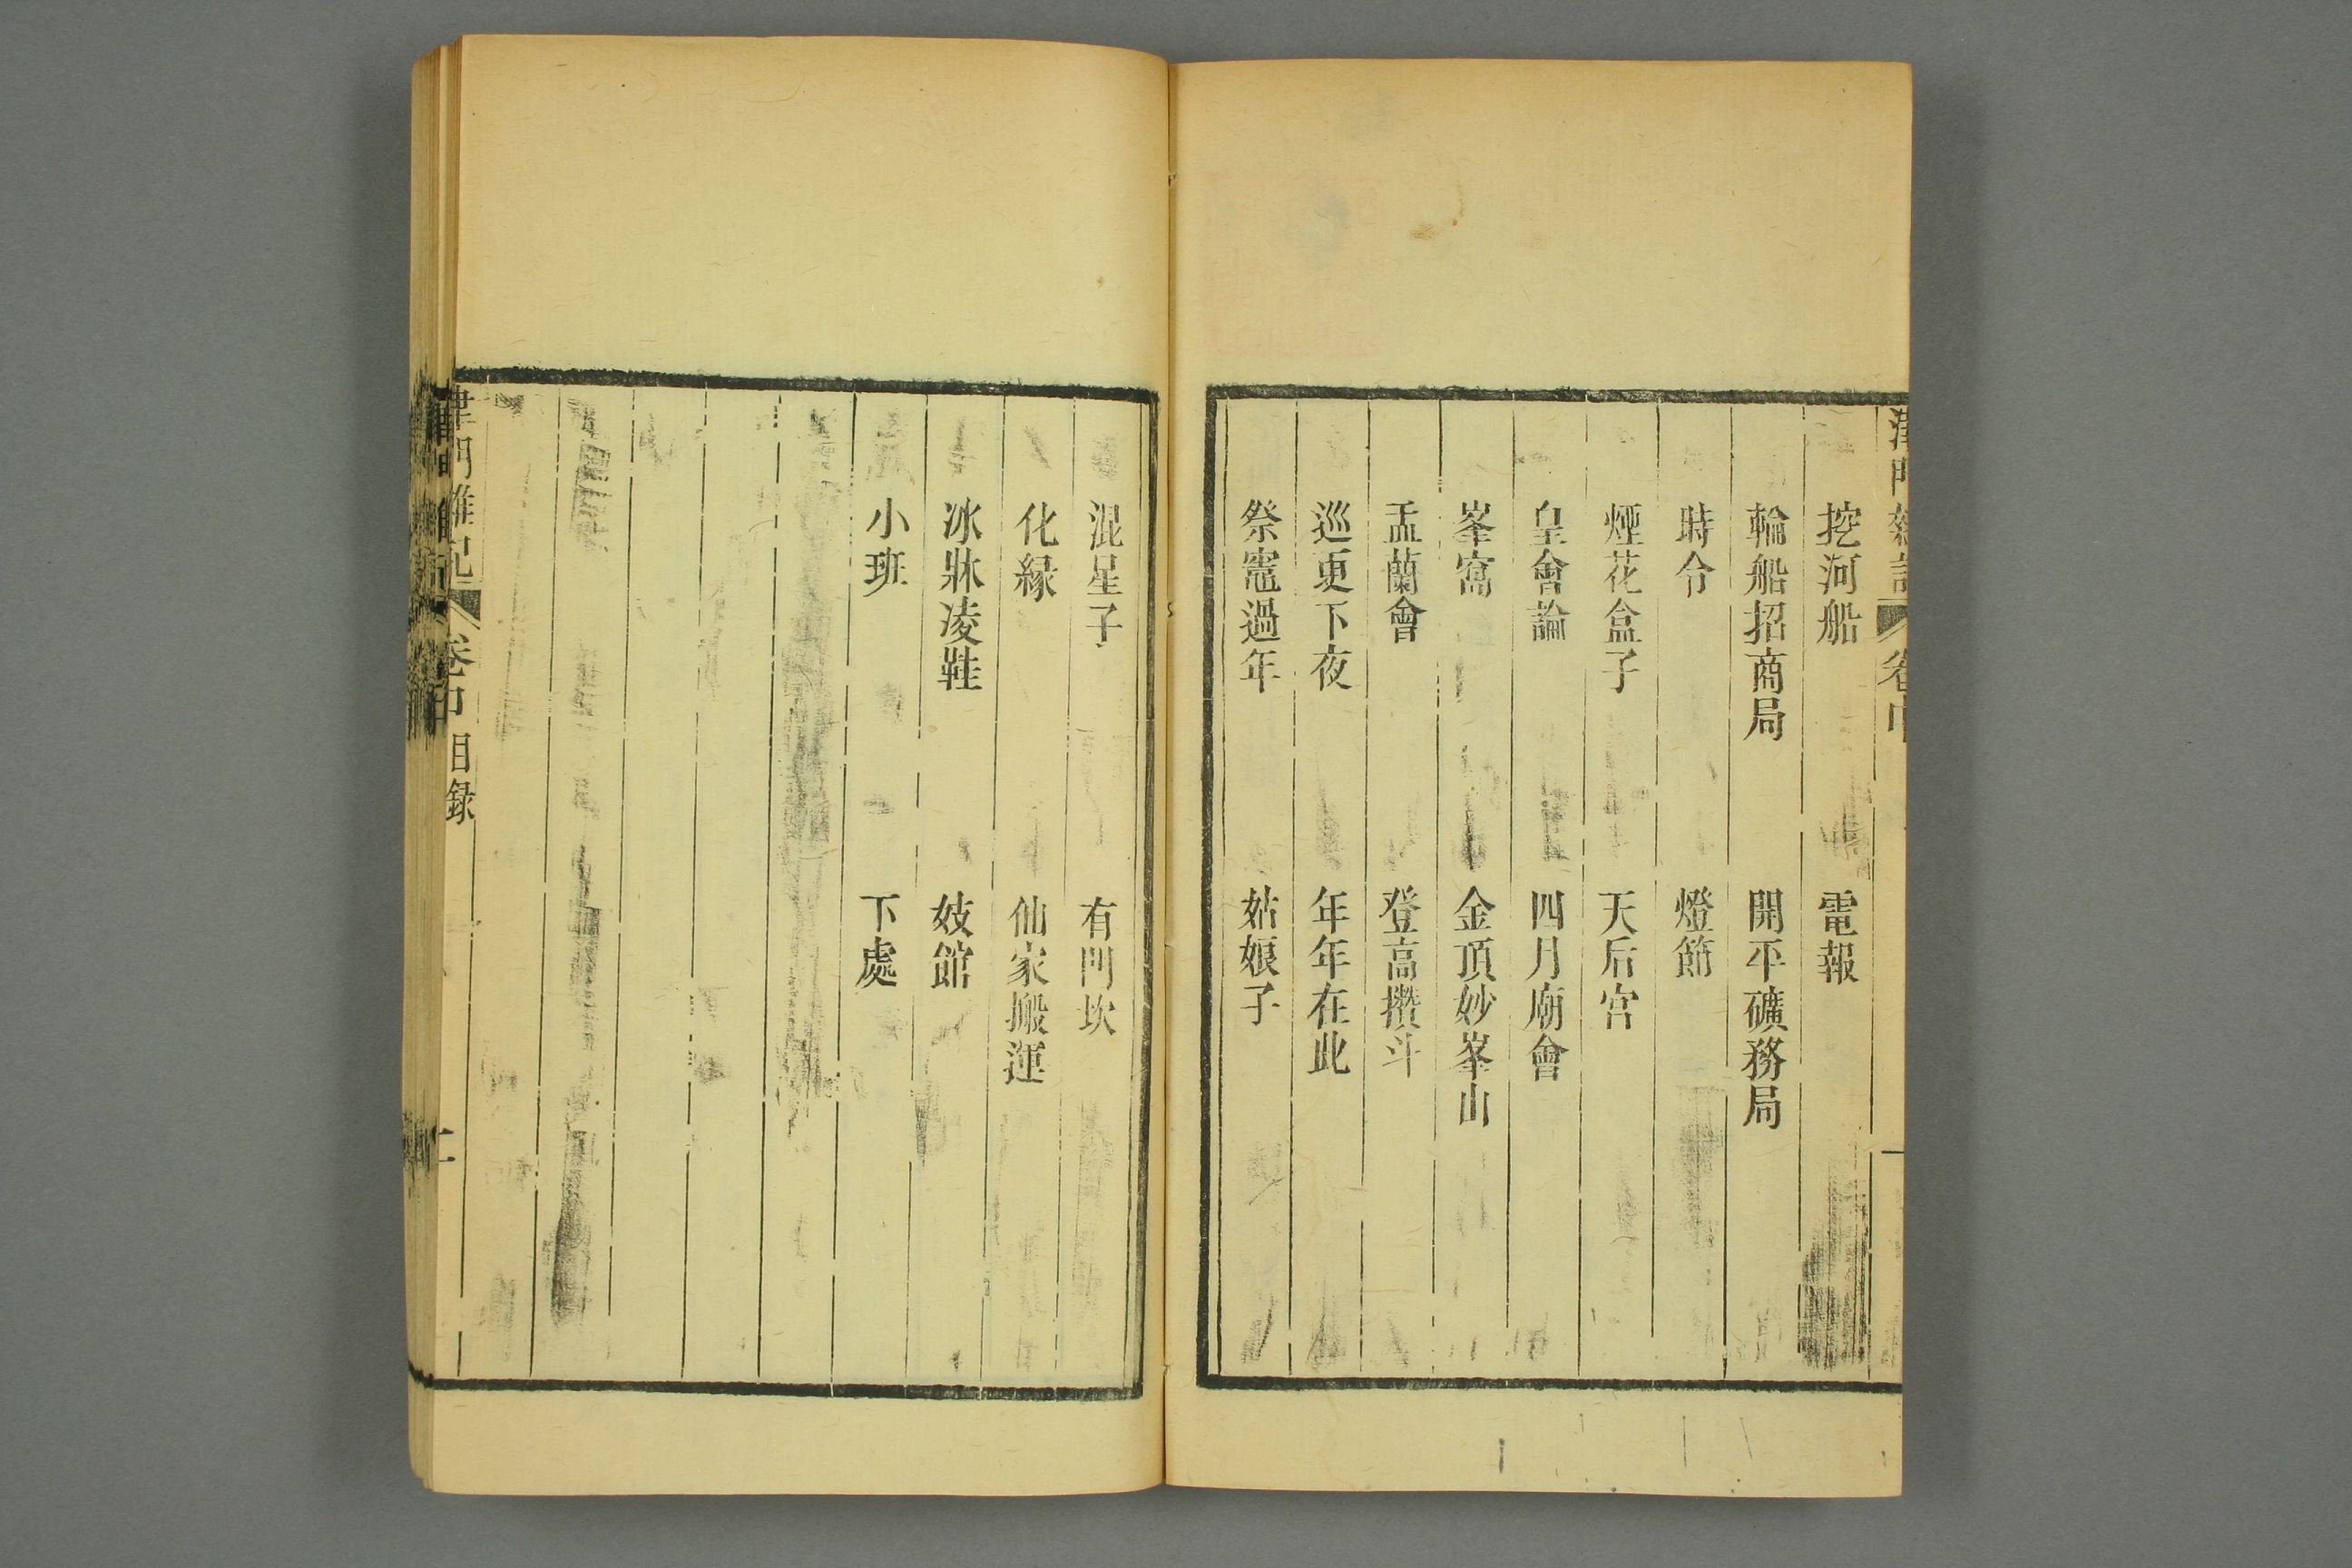 津門雜記 卷中
挖河船 電報
輪船招商局 開平礦務局
時令 燈節
煙花盒子 天后宮
皇會論 四月廟會
峯窩 金頂妙峯山
盂蘭會 登高攢斗
巡更下夜 年年在此
祭竈過年 姑娘子
混星子 有門坎
化緣 仙家搬運
冰牀凌鞋 妓館
小班 下處
津門雜記 卷中目錄 二